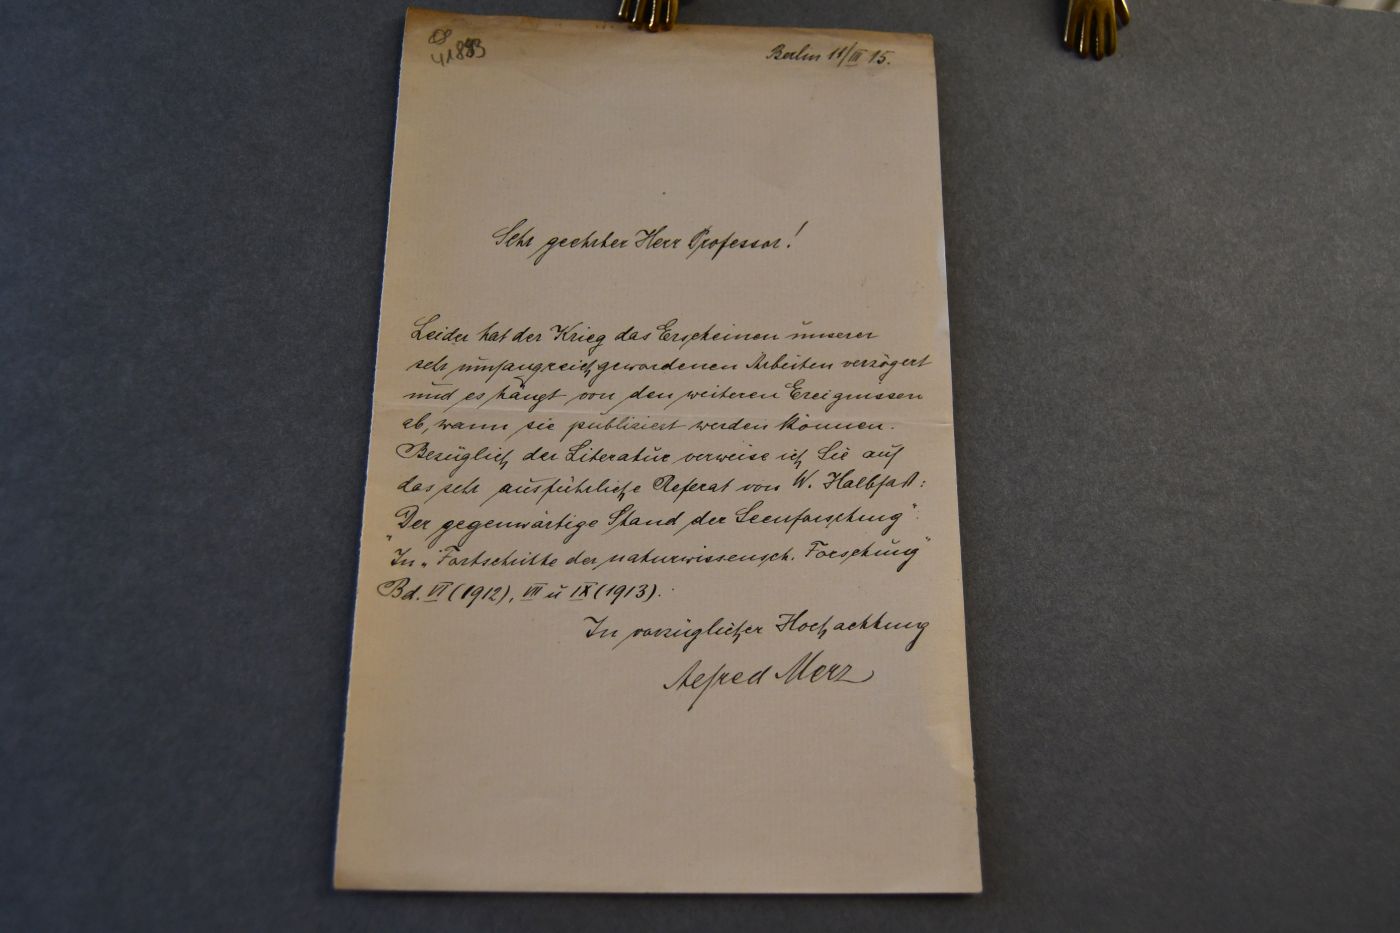 41883
Berlin 11/III 15.
Sehr geehrter Herr Professor!
Leider hat der Krieg das Erscheinen unserer
sehr umfangreich gewordenen Arbeiten verzögert
und es hängt von den weiteren Ereignissen
ab, wann sie publiziert werden können.
Bezüglich der Literatur verweise ich Sie auf
das sehr ausführliche Referat von W. Halbfaß:
„Der gegenwärtige Stand der Seenforschung“.
In „Fortschritte der naturwissensch. Forschung“
Bd. VI (1912), VIII u IX (1913).
In vorzüglicher Hochachtung
Alfred Merz